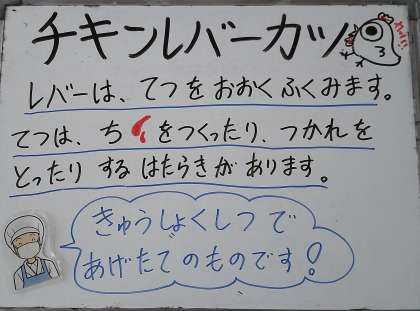 チキンレバーカツ
レバーは、てつを おおく ふくみます。
てつは、ち をつくったり、つかれを
とったり する はたらきが あります。
きゅうしょくしつ で
あげたて のものです!